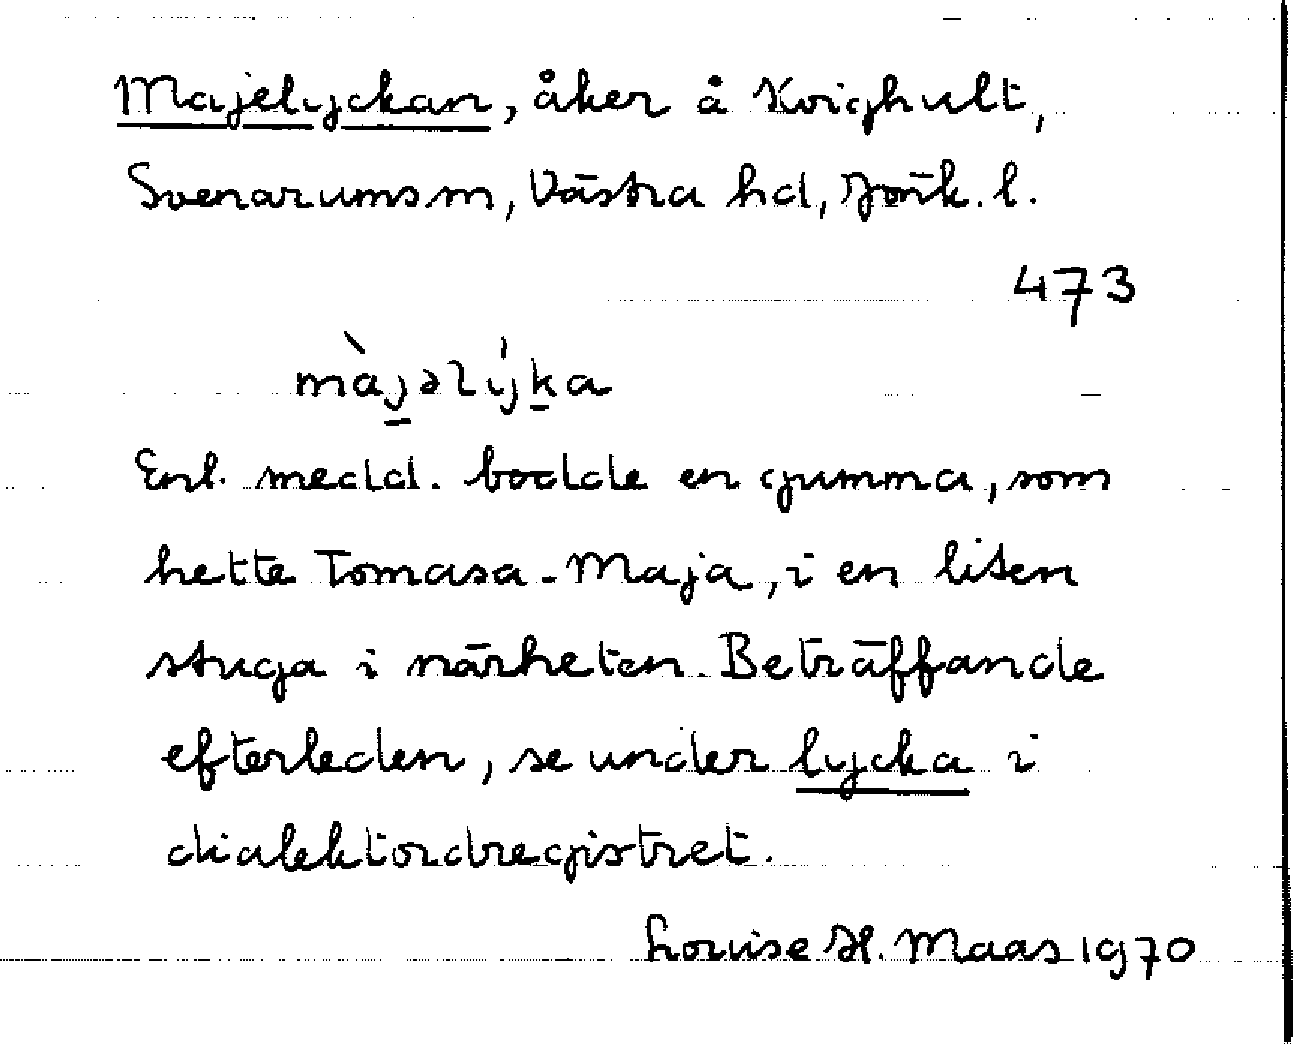 Majelyckan, åker å Kvighult,
Svenarums sn, Västra hd, Jönk. l.
473
màjəlýka
Enl. medd. bodde en gumma, som
hette Tomasa-Maja, i en liten
stuga i närheten. Beträffande
efterleden, se under lycka i
dialektordregistret.
Louise H. Maas 1970